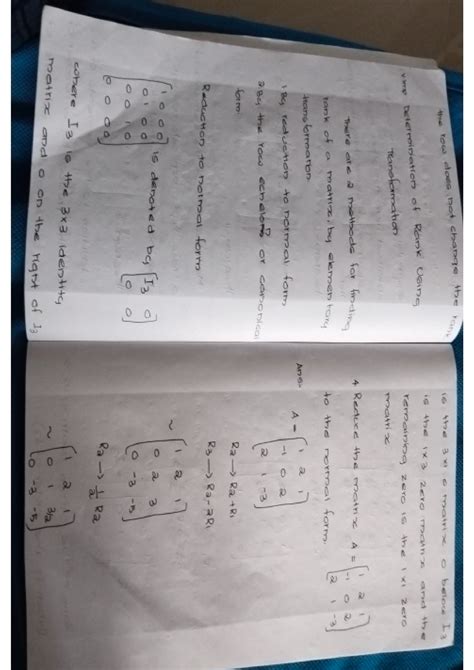 the tool does not change the rank
Determination of Rank Using
Transformation
There are 2 methods for finding
rank of a matrix, by elementary
transformation
1 By reduction to normal form
2 By the row echelon or canonical
form
Reduction to normal form
[1 0 0 0
0 1 0 0
0 0 1 0
0 0 0 0] is denoted by [I3 0
0 0]
where I3 is the 3x3 identity
matrix and 0 on the right of I3
is the 3x1 0 matrix 0 below I3
is the 1x3 zero matrix and the
remaining zero is the 1x1 zero
matrix
4 Reduce the matrix A = [1 2 1
-1 0 2
2 1 -3]
to the normal form
Ans:
A = [1 2 1
-1 0 2
2 1 -3]
R2 → R2+R1
R3 → R3-2R1
~ [1 2 1
0 2 3
0 -3 -5]
R2 → 1/2 R2
~ [1 2 1
0 1 3/2
0 -3 -5]